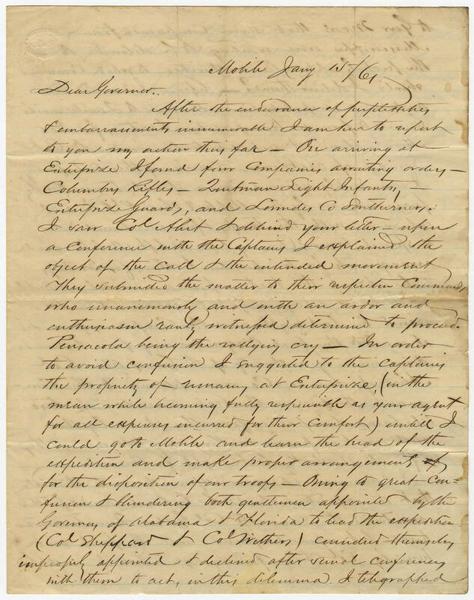 Mobile Jany 15/61
Dear Governor.
After the endurance of perplexities
& embarrassments innumerable I am here to report
to you my action thus far — On arriving at
Enterprize I found four Companies awaiting orders —
Columbus Rifles — Lauderdale Light Infantry —
Enterprize Guards, and Lowndes Co Southerners.
I saw Col Abert & delivered your letter — upon
a Conference with the Captains I explained the
object of the Call & the intended movement
They submitted the matter to their respective Commands
who unanimously and with an ardor and
enthusiasm rarely witnessed determined to proceed
Pensacola being the rallying cry — In order
to avoid confusion I suggested to the Captains
the propriety of remaing at Enterprize, (in the
mean while becoming fully responsible as your agent
for all expenses incurred for their Comfort) untill I
could go to Mobile and learn the head of the
expedition and make proper arrangements
for the disposition of our troops — Owing to great con-
fusion & blundering both gentlemen appointed by the
Governors of Alabama & Florida to lead the expedition
(Col Sheppard & Col Withers) considered themselves
improperly appointed & declined after several conferences
with them to act, in this dilemma I telegraphed